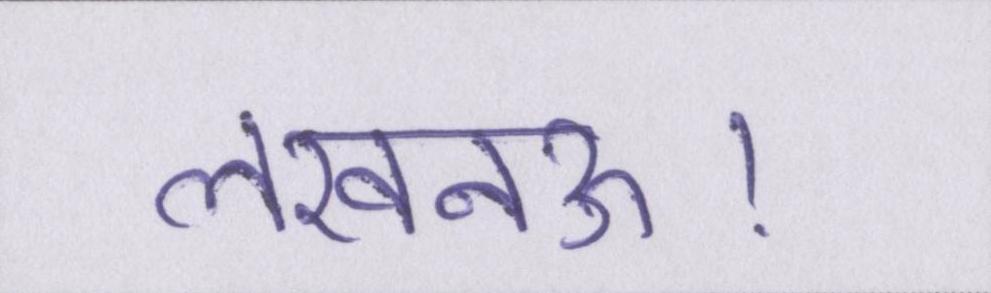 लखनऊ!